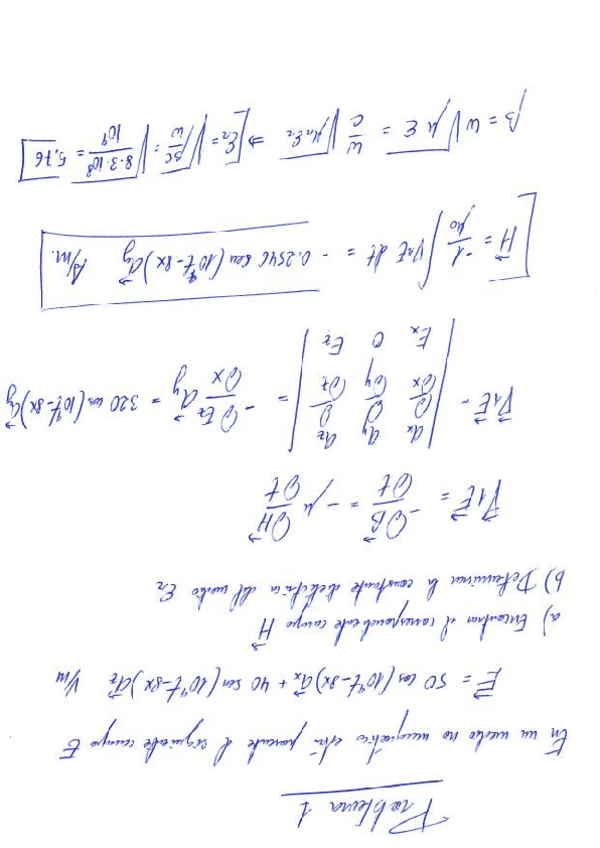 Problema 1
En un medio no magnético está presente el siguiente campo E
E⃗ = 50 cos(10⁹t-8x) a⃗x + 40 sen(10⁹t-8x) a⃗z V/m
a) Encontrar el correspondiente campo H⃗
b) Determinar la constante dieléctrica del medio εr
∇⃗∧E⃗ = -∂B⃗/∂t = -μ ∂H⃗/∂t
∇⃗∧E⃗ = | ax ay az ; ∂/∂x ∂/∂y ∂/∂z ; Ex 0 Ez | = -∂Ez/∂x a⃗y = 320 cos(10⁹t-8x) a⃗y
H⃗ = -1/μ₀ ∫ ∇∧E dt = - 0.2546 sen(10⁹t-8x) a⃗y A/m.
β = ω√με = ω/c √μrεr ⇒ [εr = √βc/ω = √8·3·10⁸/10⁹ = 5,76